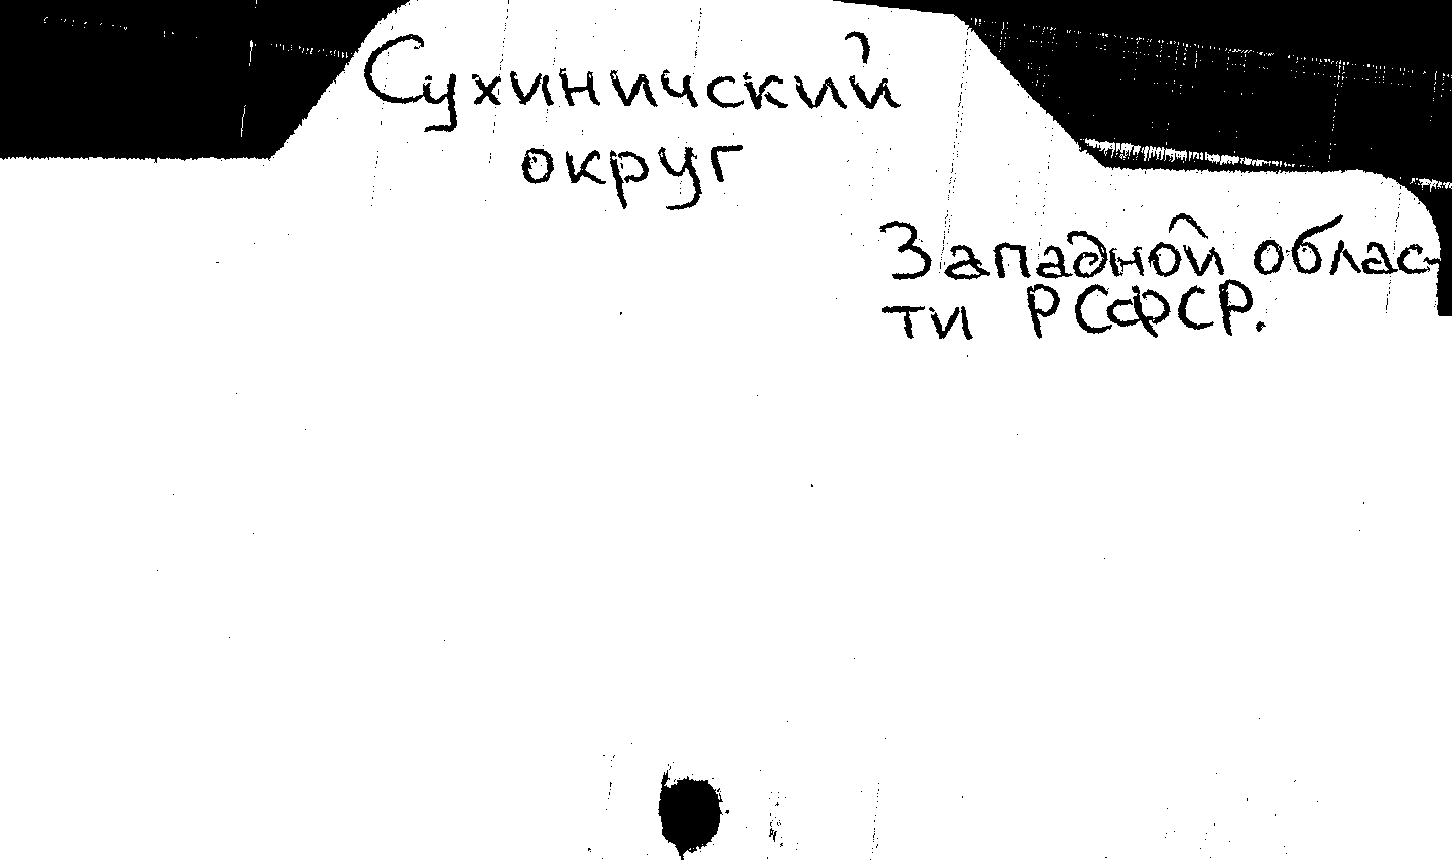 Сухиничский
округ
Западной облас-
ти РСФСР.